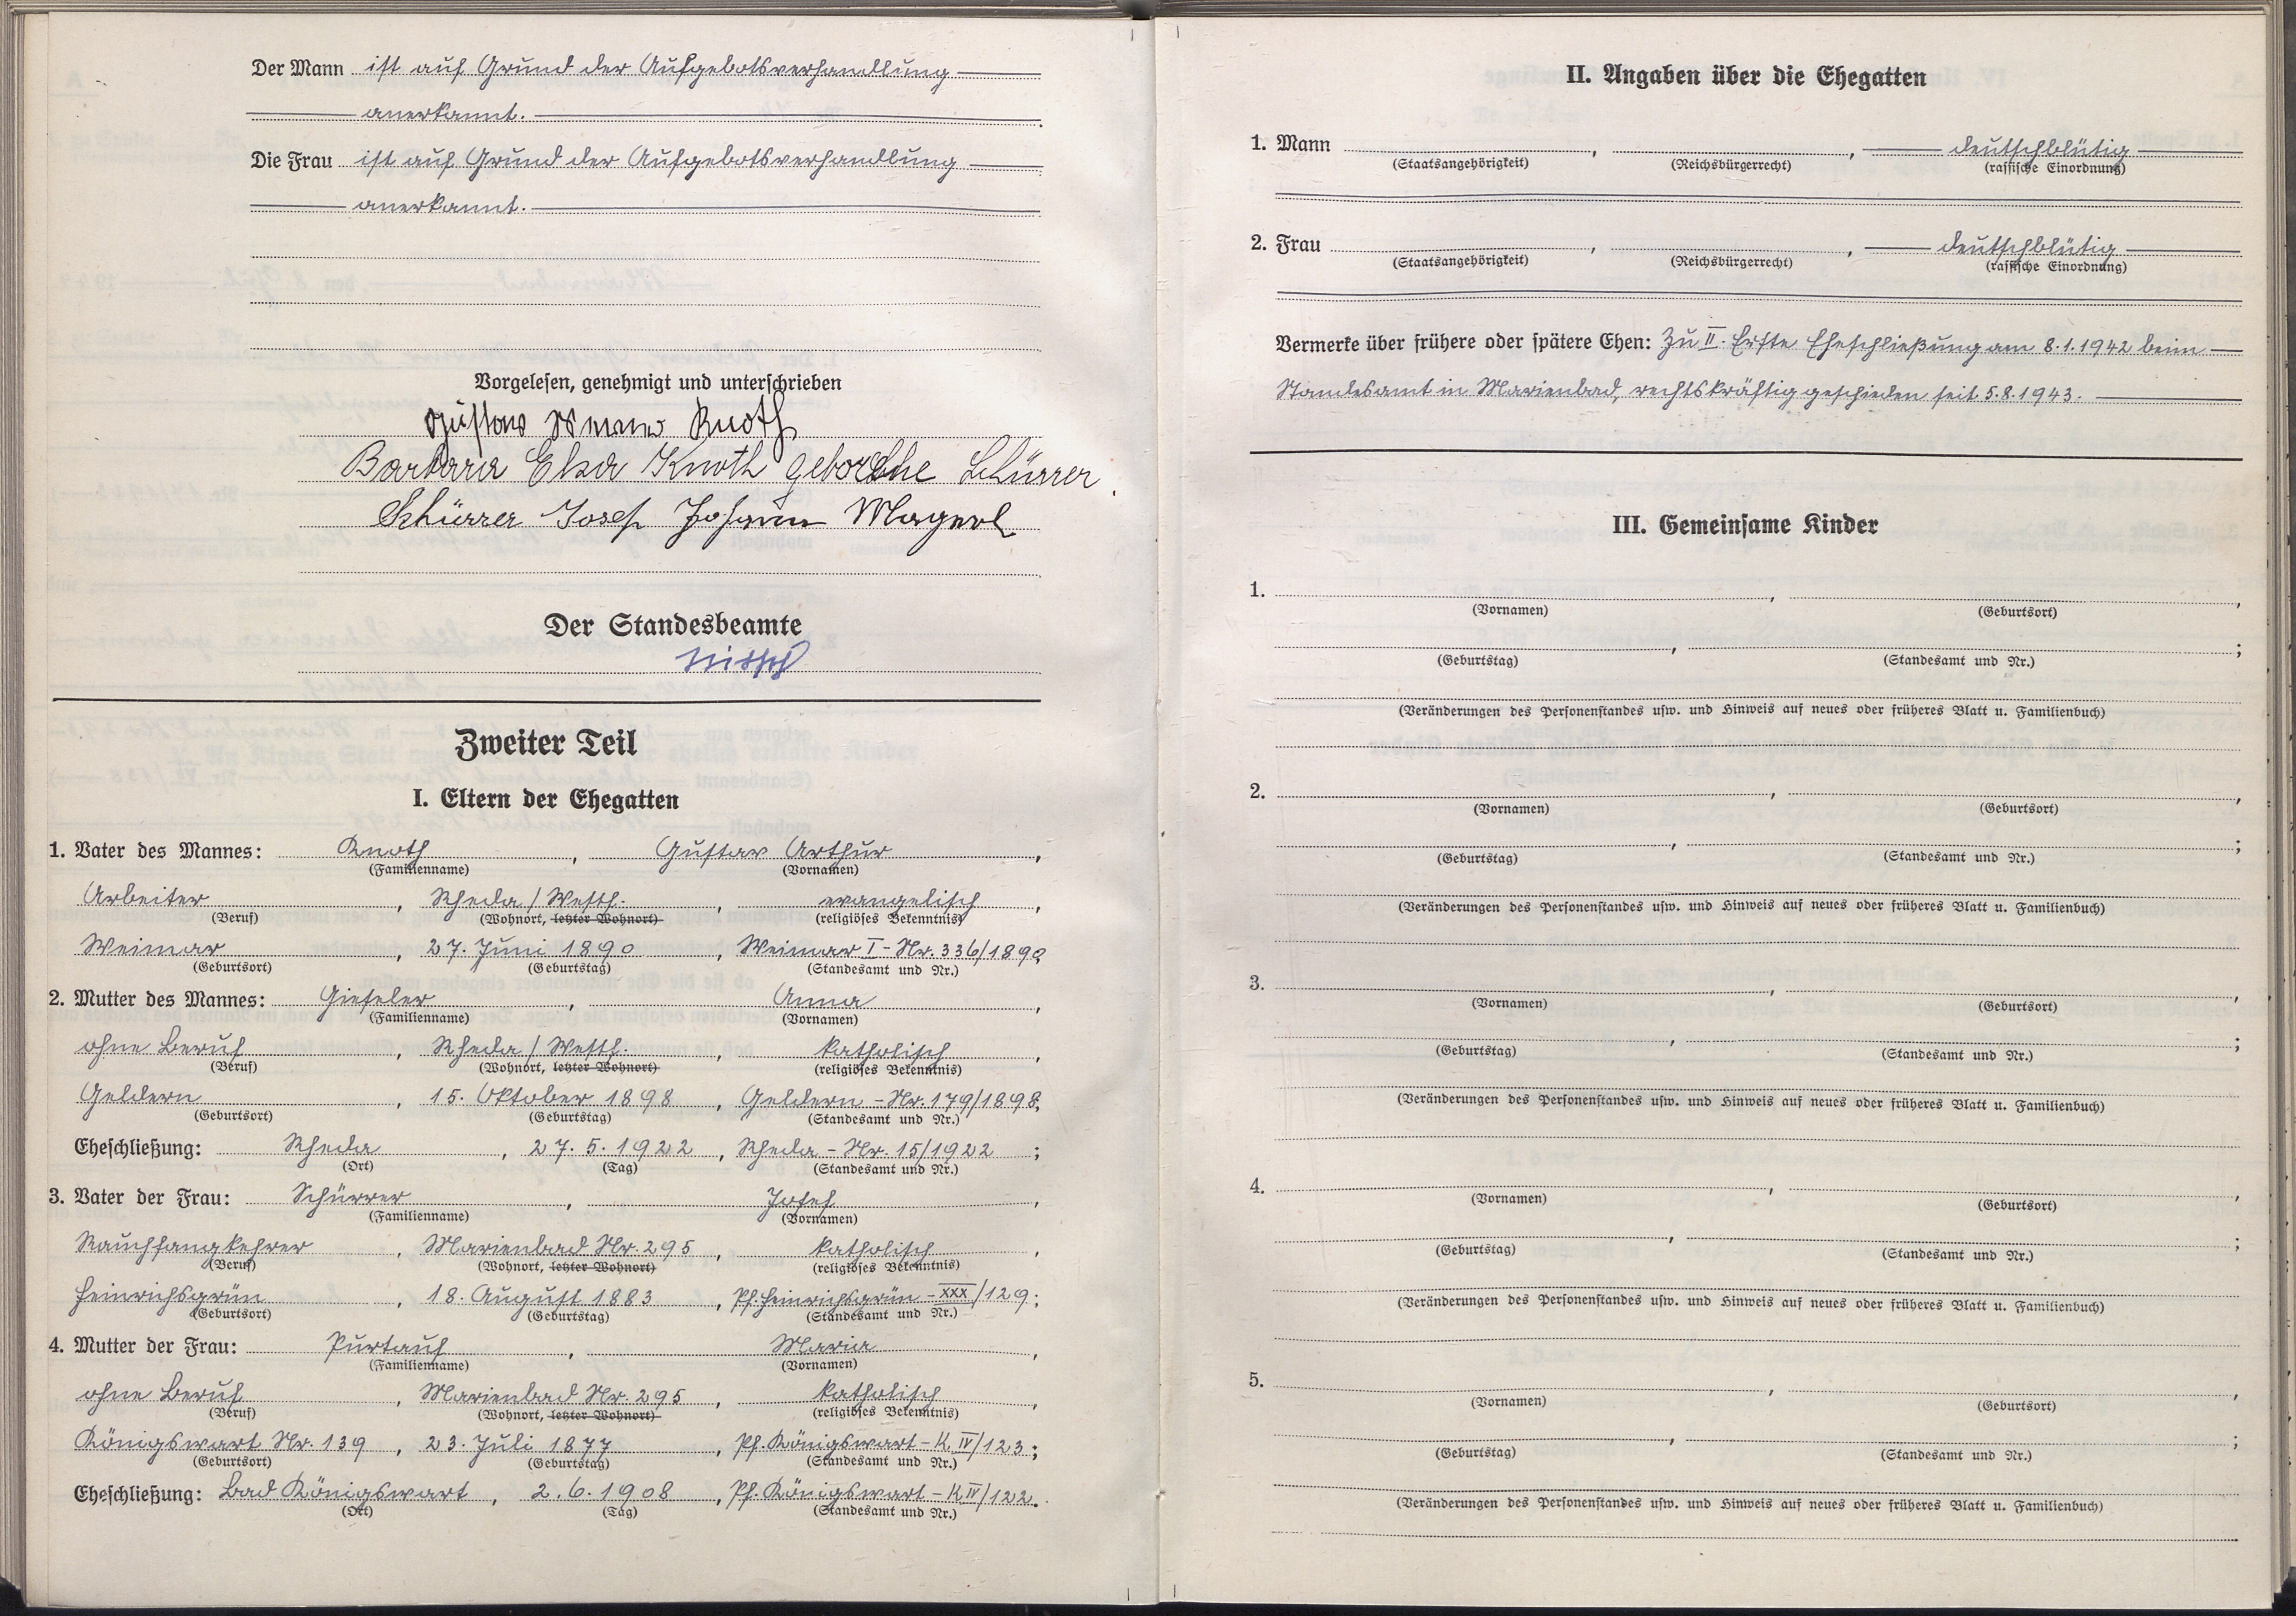 Der Mann ist auf Grund der Aufgebotsverhandlung
anerkannt.
Die Frau ist auf Grund der Aufgebotsverhandlung
anerkannt.
Vorgelesen, genehmigt und unterschrieben
Gustav Werner Knoth
Barbara Elsa Knoth geborene Schürrer
Schürrer Josef Johann Magerl
Der Standesbeamte
Zweiter Teil
I. Eltern der Ehegatten
1. Vater des Mannes: Knoth, Gustav Arthur,
(Familienname) (Vornamen)
Arbeiter, Rheda / Westf., evangelisch,
(Beruf) (Wohnort, letzter Wohnort) (religiöses Bekenntnis)
Weimar, 27. Juni 1890, Weimar I - Nr. 336/1890,
(Geburtsort) (Geburtstag) (Standesamt und Nr.)
2. Mutter des Mannes: Gieseler, Anna,
(Familienname) (Vornamen)
ohne Beruf, Rheda / Westf., katholisch,
(Beruf) (Wohnort, letzter Wohnort) (religiöses Bekenntnis)
Geldern, 15. Oktober 1898, Geldern - Nr. 179/1898;
(Geburtsort) (Geburtstag) (Standesamt und Nr.)
Eheschließung: Rheda, 27. 5. 1922, Rheda - Nr. 15/1922;
(Ort) (Tag) (Standesamt und Nr.)
3. Vater der Frau: Schürrer, Josef,
(Familienname) (Vornamen)
Rauchfangkehrer, Marienbad Nr. 295, katholisch,
(Beruf) (Wohnort, letzter Wohnort) (religiöses Bekenntnis)
Heinrichsgrün, 18. August 1883, Pf. Heinrichsgrün - XXX/129;
(Geburtsort) (Geburtstag) (Standesamt und Nr.)
4. Mutter der Frau: Purtauf, Maria,
(Familienname) (Vornamen)
ohne Beruf, Marienbad Nr. 295, katholisch,
(Beruf) (Wohnort, letzter Wohnort) (religiöses Bekenntnis)
Königswart Nr. 139, 23. Juli 1877, Pf. Königswart - K IV/123;
(Geburtsort) (Geburtstag) (Standesamt und Nr.)
Eheschließung: Bad Königswart, 2. 6. 1908, Pf. Königswart - K IV/122.
(Ort) (Tag) (Standesamt und Nr.)
II. Angaben über die Ehegatten
1. Mann , , deutschblütig
(Staatsangehörigkeit) (Reichsbürgerrecht) (rassische Einordnung)
2. Frau , , deutschblütig
(Staatsangehörigkeit) (Reichsbürgerrecht) (rassische Einordnung)
Vermerke über frühere oder spätere Ehen: Zu II. Erste Eheschließung am 8.1.1942 beim
Standesamt in Marienbad, rechtskräftig geschieden seit 5.8.1943.
III. Gemeinsame Kinder
1. , ,
(Vornamen) (Geburtsort)
, ;
(Geburtstag) (Standesamt und Nr.)
(Veränderungen des Personenstandes usw. und Hinweis auf neues oder früheres Blatt u. Familienbuch)
2. , ,
(Vornamen) (Geburtsort)
, ;
(Geburtstag) (Standesamt und Nr.)
(Veränderungen des Personenstandes usw. und Hinweis auf neues oder früheres Blatt u. Familienbuch)
3. , ,
(Vornamen) (Geburtsort)
, ;
(Geburtstag) (Standesamt und Nr.)
(Veränderungen des Personenstandes usw. und Hinweis auf neues oder früheres Blatt u. Familienbuch)
4. , ,
(Vornamen) (Geburtsort)
, ;
(Geburtstag) (Standesamt und Nr.)
(Veränderungen des Personenstandes usw. und Hinweis auf neues oder früheres Blatt u. Familienbuch)
5. , ,
(Vornamen) (Geburtsort)
, ;
(Geburtstag) (Standesamt und Nr.)
(Veränderungen des Personenstandes usw. und Hinweis auf neues oder früheres Blatt u. Familienbuch)